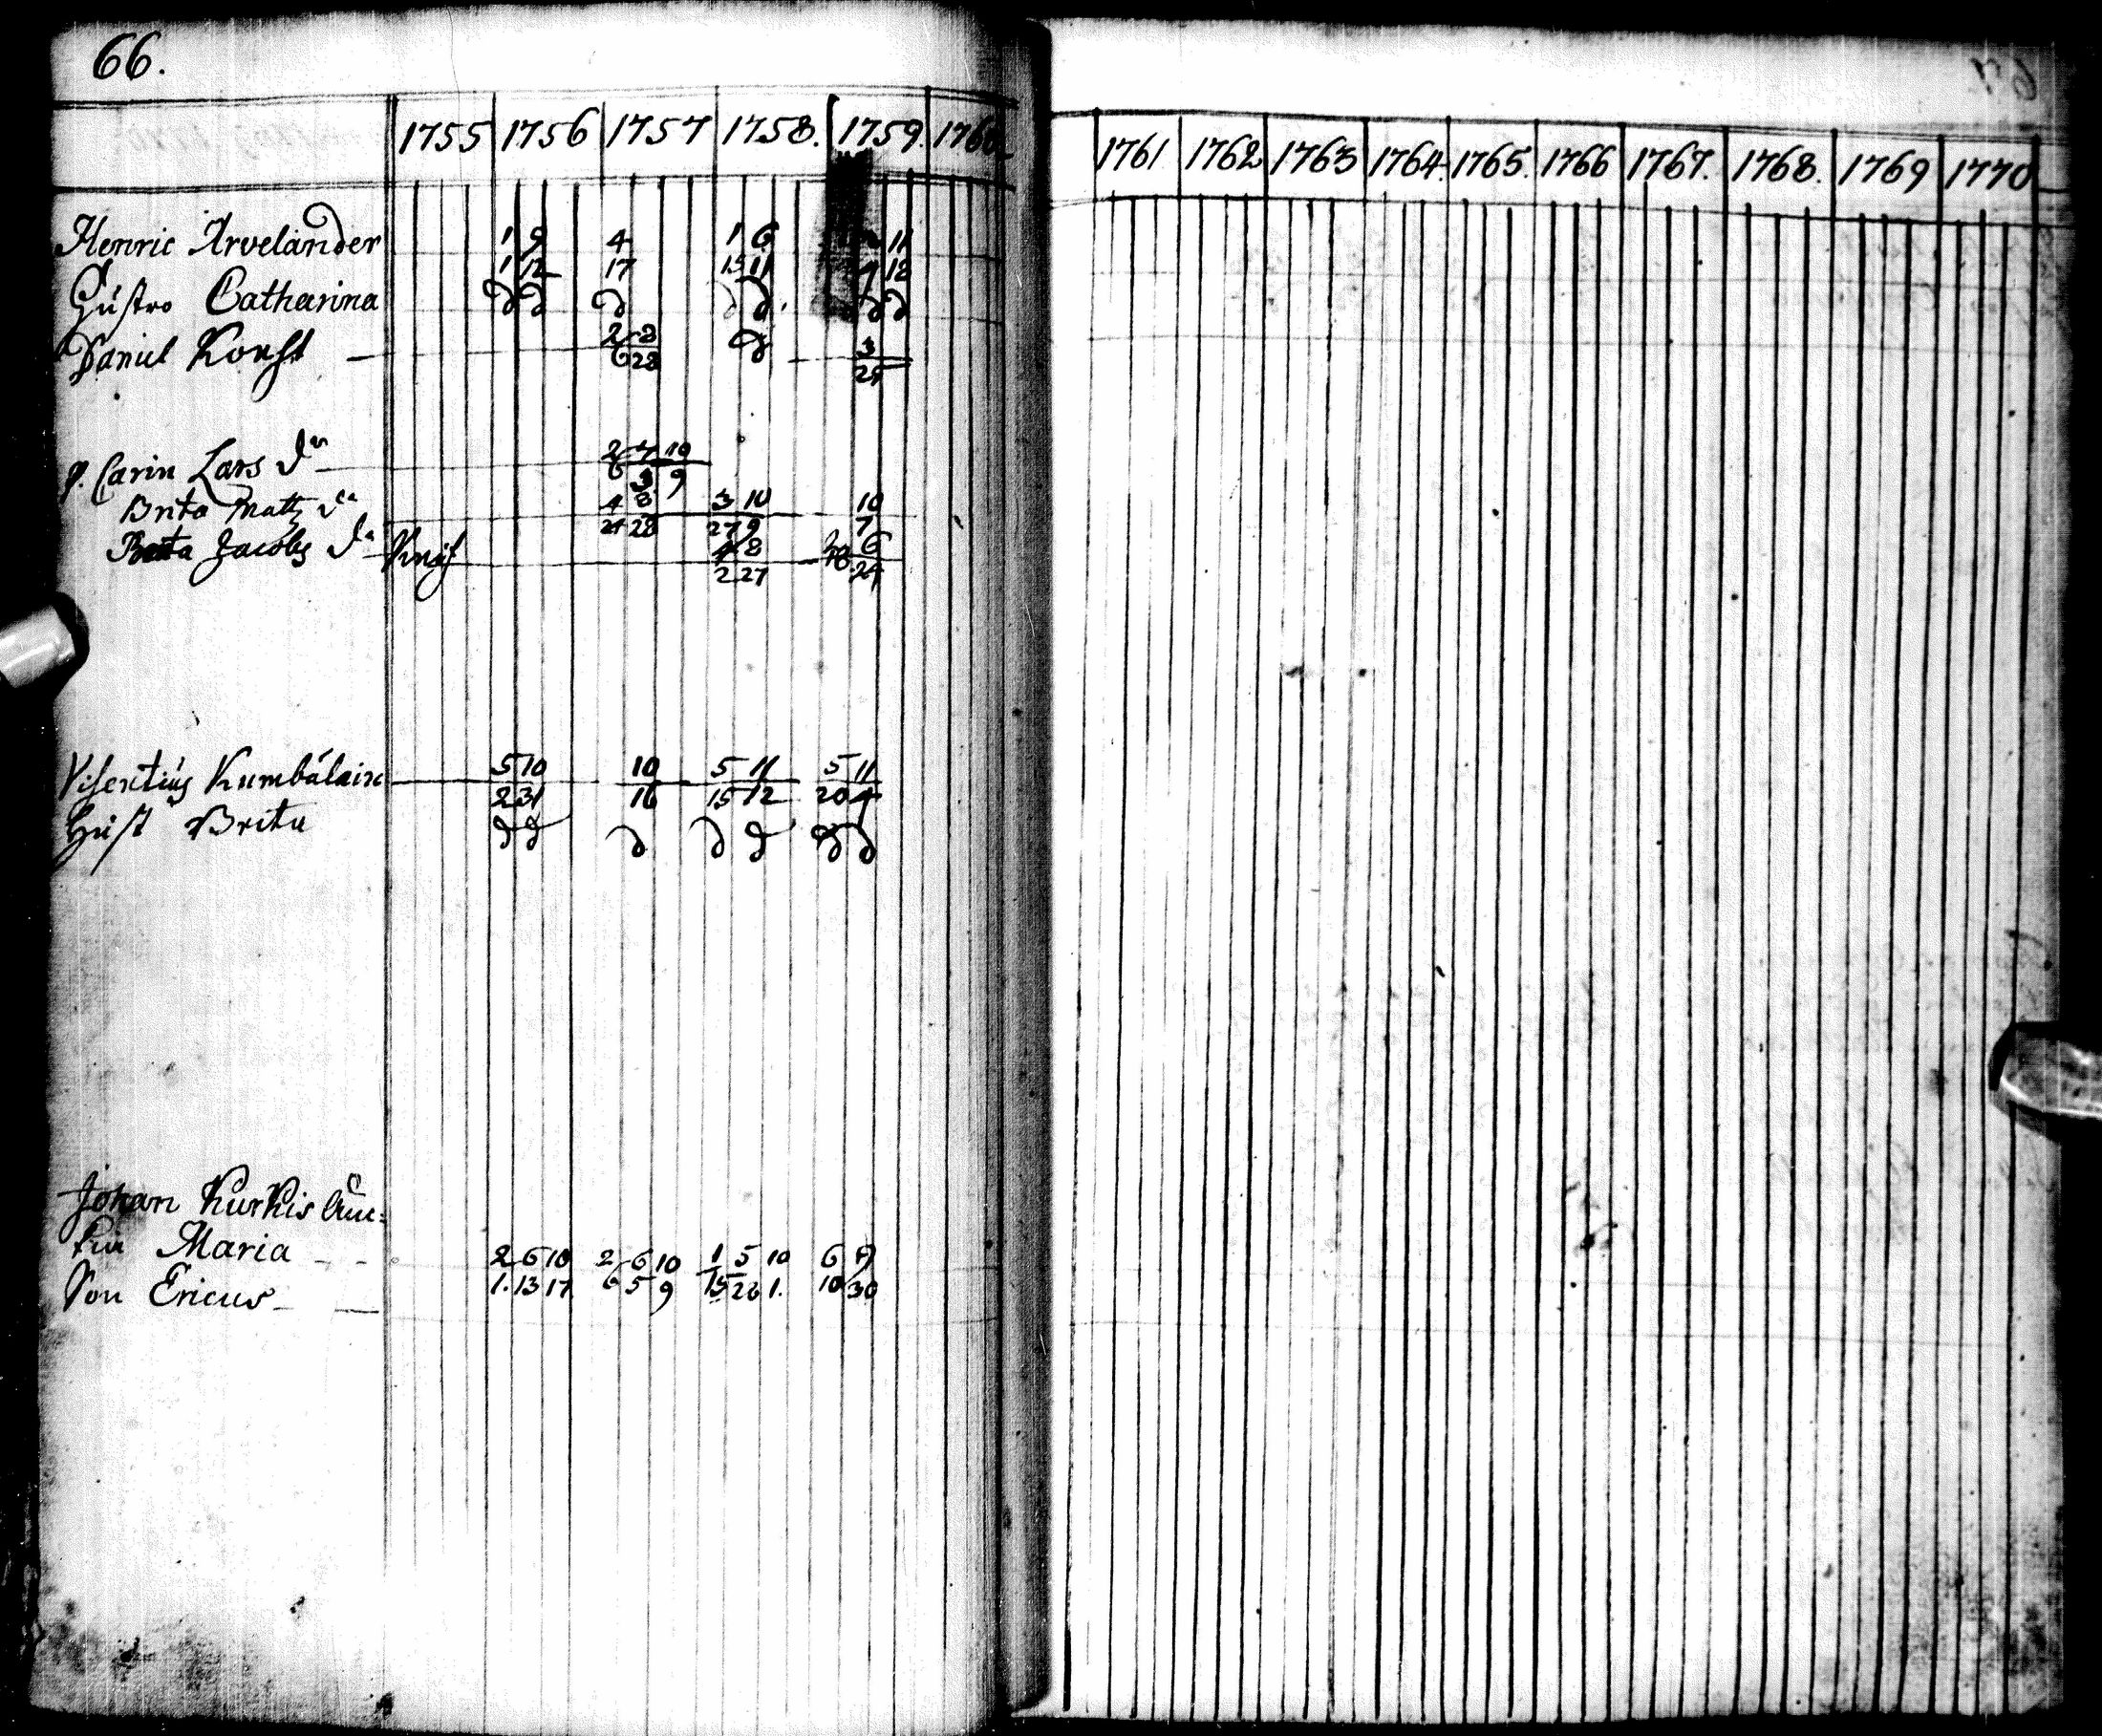 66.
1755 1756 1757 1758. 1759. 1760
1761 1762 1763 1764. 1765. 1766 1767. 1768. 1769 1770
Henric Arvelander 1 9 4 1 6 11
1 12 17 15 11 9 12
Hustro Catharina
Daniel 2 8 3
6 28 25
p. Carin Lars dr 2 7 10
6 3 9
Brita Matts dr 4 8 3 10 10
24 28 27 9 7
Beata Jacobs dr 4 8 6
2 27 24
Visentius Kumbulain 5 10 10 5 11 5 11
2 31 16 15 12 20 4
Hust Brita
Johan Kurkis
Maria 2 6 10 2 6 10 1 5 10 6 9
Son Ericus 1. 13 17 6 5 9 15 26 1. 10 30